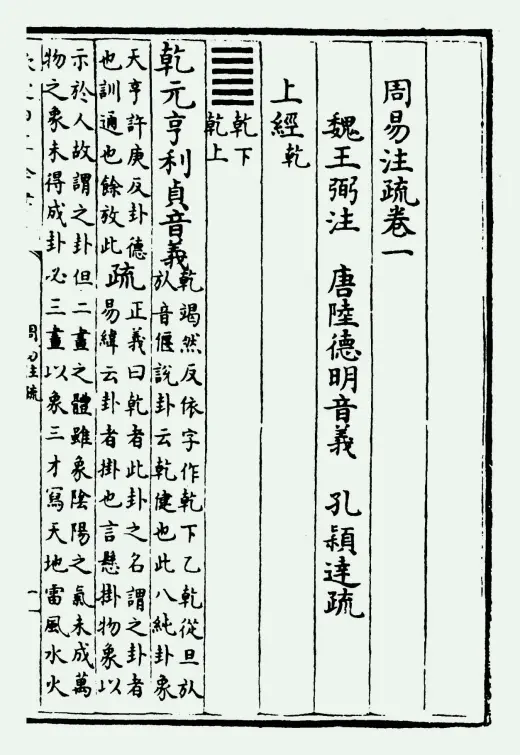 周易注疏卷一
魏王弼注 唐陸德明音義 孔穎達疏
上經乾
乾下
乾上
乾元亨利貞音義
乾竭然反依字作乾下乙乾從旦㫃
㫃音偃說卦云乾健也此八純卦象
天亨許庚反卦德
也訓通也餘放此
疏
正義曰乾者此卦之名謂之卦者
易緯云卦者掛也言懸掛物象以
示於人故謂之卦但二畫之體雖象陰陽之氣未成萬
物之象未得成卦必三畫以象三才寫天地雷風水火
周易注疏